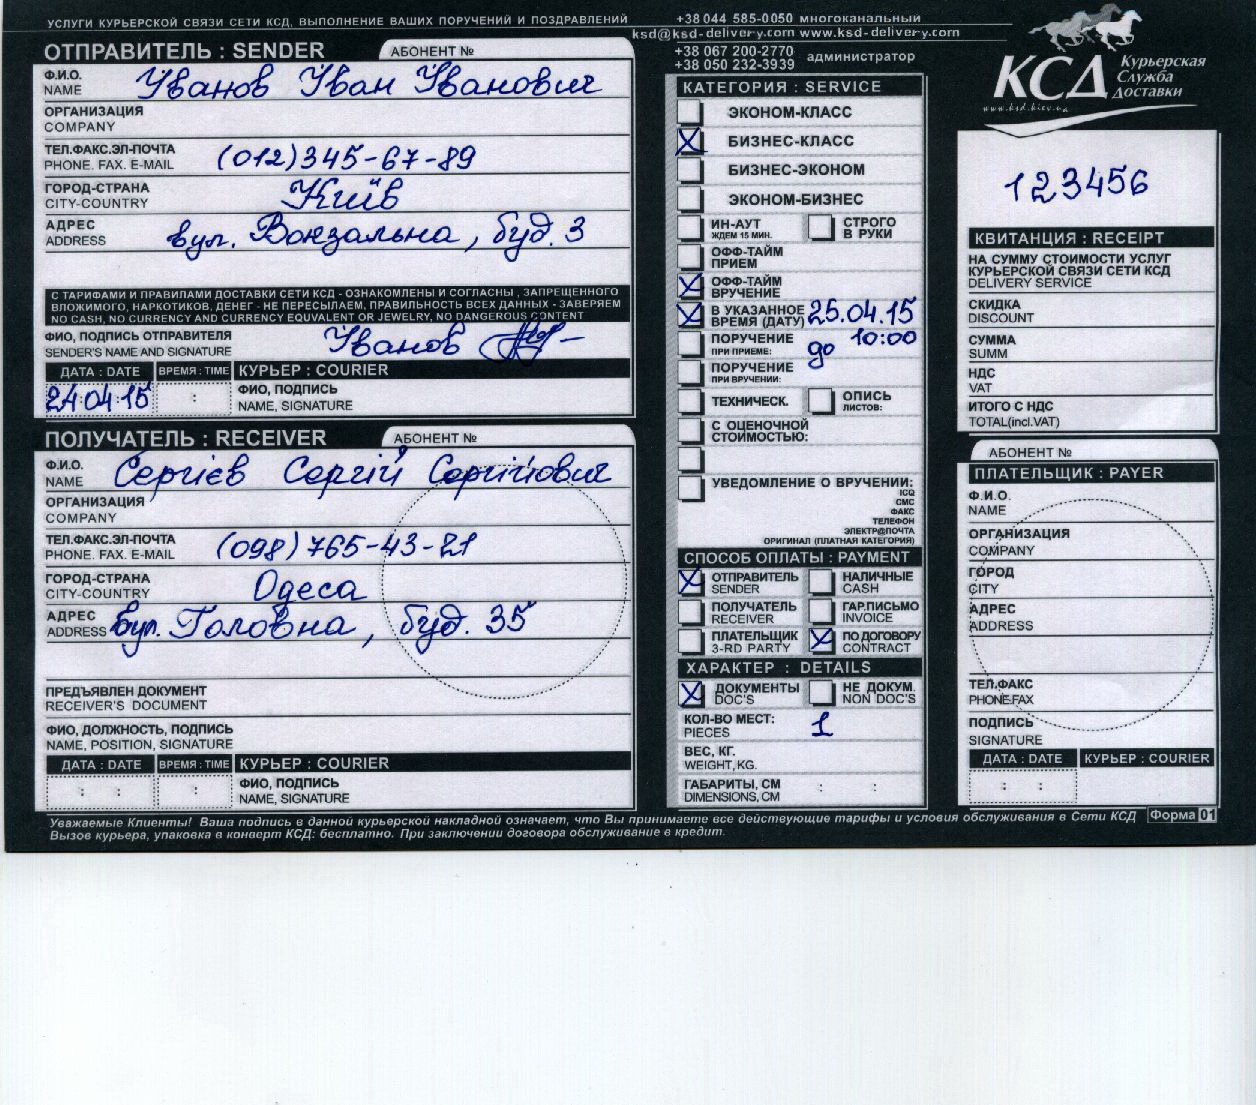 УСЛУГИ КУРЬЕРСКОЙ СВЯЗИ СЕТИ КСД, ВЫПОЛНЕНИЕ ВАШИХ ПОРУЧЕНИЙ И ПОЗДРАВЛЕНИЙ
+38 044 585-0050 многоканальный
ksd@ksd-delivery.com www.ksd-delivery.com
+38 067 200-2770
+38 050 232-3939 администратор
КСД Курьерская Служба Доставки
www.ksd.kiev.ua
ОТПРАВИТЕЛЬ : SENDER АБОНЕНТ №
Ф.И.О. Іванов Іван Іванович
NAME
ОРГАНИЗАЦИЯ
COMPANY
ТЕЛ.ФАКС.ЭЛ-ПОЧТА (012)345-67-89
PHONE. FAX. E-MAIL
ГОРОД-СТРАНА Київ
CITY-COUNTRY
АДРЕС вул. Вокзальна, буд. 3
ADDRESS
С ТАРИФАМИ И ПРАВИЛАМИ ДОСТАВКИ СЕТИ КСД - ОЗНАКОМЛЕНЫ И СОГЛАСНЫ , ЗАПРЕЩЕННОГО
ВЛОЖИМОГО, НАРКОТИКОВ, ДЕНЕГ - НЕ ПЕРЕСЫЛАЕМ, ПРАВИЛЬНОСТЬ ВСЕХ ДАННЫХ - ЗАВЕРЯЕМ
NO CASH, NO CURRENCY AND CURRENCY EQUVALENT OR JEWELRY, NO DANGEROUS CONTENT
ФИО, ПОДПИСЬ ОТПРАВИТЕЛЯ Іванов
SENDER'S NAME AND SIGNATURE
ДАТА : DATE ВРЕМЯ : TIME КУРЬЕР : COURIER
24:04:15 : ФИО, ПОДПИСЬ
NAME, SIGNATURE
ПОЛУЧАТЕЛЬ : RECEIVER АБОНЕНТ №
Ф.И.О. Сергієв Сергій Сергійович
NAME
ОРГАНИЗАЦИЯ
COMPANY
ТЕЛ.ФАКС.ЭЛ-ПОЧТА (098)765-43-21
PHONE. FAX. E-MAIL
ГОРОД-СТРАНА Одеса
CITY-COUNTRY
АДРЕС вул. Головна, буд. 35
ADDRESS
ПРЕДЪЯВЛЕН ДОКУМЕНТ
RECEIVER'S DOCUMENT
ФИО, ДОЛЖНОСТЬ, ПОДПИСЬ
NAME, POSITION, SIGNATURE
ДАТА : DATE ВРЕМЯ : TIME КУРЬЕР : COURIER
: : : ФИО, ПОДПИСЬ
NAME, SIGNATURE
КАТЕГОРИЯ : SERVICE
ЭКОНОМ-КЛАСС
X БИЗНЕС-КЛАСС
БИЗНЕС-ЭКОНОМ
ЭКОНОМ-БИЗНЕС
ИН-АУТ СТРОГО
ЖДЕМ 15 МИН. В РУКИ
ОФФ-ТАЙМ
ПРИЕМ
X ОФФ-ТАЙМ
ВРУЧЕНИЕ
X В УКАЗАННОЕ 25.04.15
ВРЕМЯ (ДАТУ)
ПОРУЧЕНИЕ до 10:00
ПРИ ПРИЕМЕ:
ПОРУЧЕНИЕ
ПРИ ВРУЧЕНИИ:
ТЕХНИЧЕСК. ОПИСЬ
ЛИСТОВ:
С ОЦЕНОЧНОЙ
СТОИМОСТЬЮ:
УВЕДОМЛЕНИЕ О ВРУЧЕНИИ:
ICQ
СМС
ФАКС
ТЕЛЕФОН
ЭЛЕКТР@ПОЧТА
ОРИГИНАЛ (ПЛАТНАЯ КАТЕГОРИЯ)
СПОСОБ ОПЛАТЫ : PAYMENT
X ОТПРАВИТЕЛЬ НАЛИЧНЫЕ
SENDER CASH
ПОЛУЧАТЕЛЬ ГАР.ПИСЬМО
RECEIVER INVOICE
ПЛАТЕЛЬЩИК X ПО ДОГОВОРУ
3-RD PARTY CONTRACT
ХАРАКТЕР : DETAILS
X ДОКУМЕНТЫ НЕ ДОКУМ.
DOC'S NON DOC'S
КОЛ-ВО МЕСТ: 1
PIECES
ВЕС, КГ.
WEIGHT, KG.
ГАБАРИТЫ, СМ : :
DIMENSIONS, CM
123456
КВИТАНЦИЯ : RECEIPT
НА СУММУ СТОИМОСТИ УСЛУГ
КУРЬЕРСКОЙ СВЯЗИ СЕТИ КСД
DELIVERY SERVICE
СКИДКА
DISCOUNT
СУММА
SUMM
НДС
VAT
ИТОГО С НДС
TOTAL(incl.VAT)
АБОНЕНТ №
ПЛАТЕЛЬЩИК : PAYER
Ф.И.О.
NAME
ОРГАНИЗАЦИЯ
COMPANY
ГОРОД
CITY
АДРЕС
ADDRESS
ТЕЛ.ФАКС
PHONE.FAX
ПОДПИСЬ
SIGNATURE
ДАТА : DATE КУРЬЕР : COURIER
: :
Уважаемые Клиенты! Ваша подпись в данной курьерской накладной означает, что Вы принимаете все действующие тарифы и условия обслуживания в Сети КСД Форма 01
Вызов курьера, упаковка в конверт КСД: бесплатно. При заключении договора обслуживание в кредит.